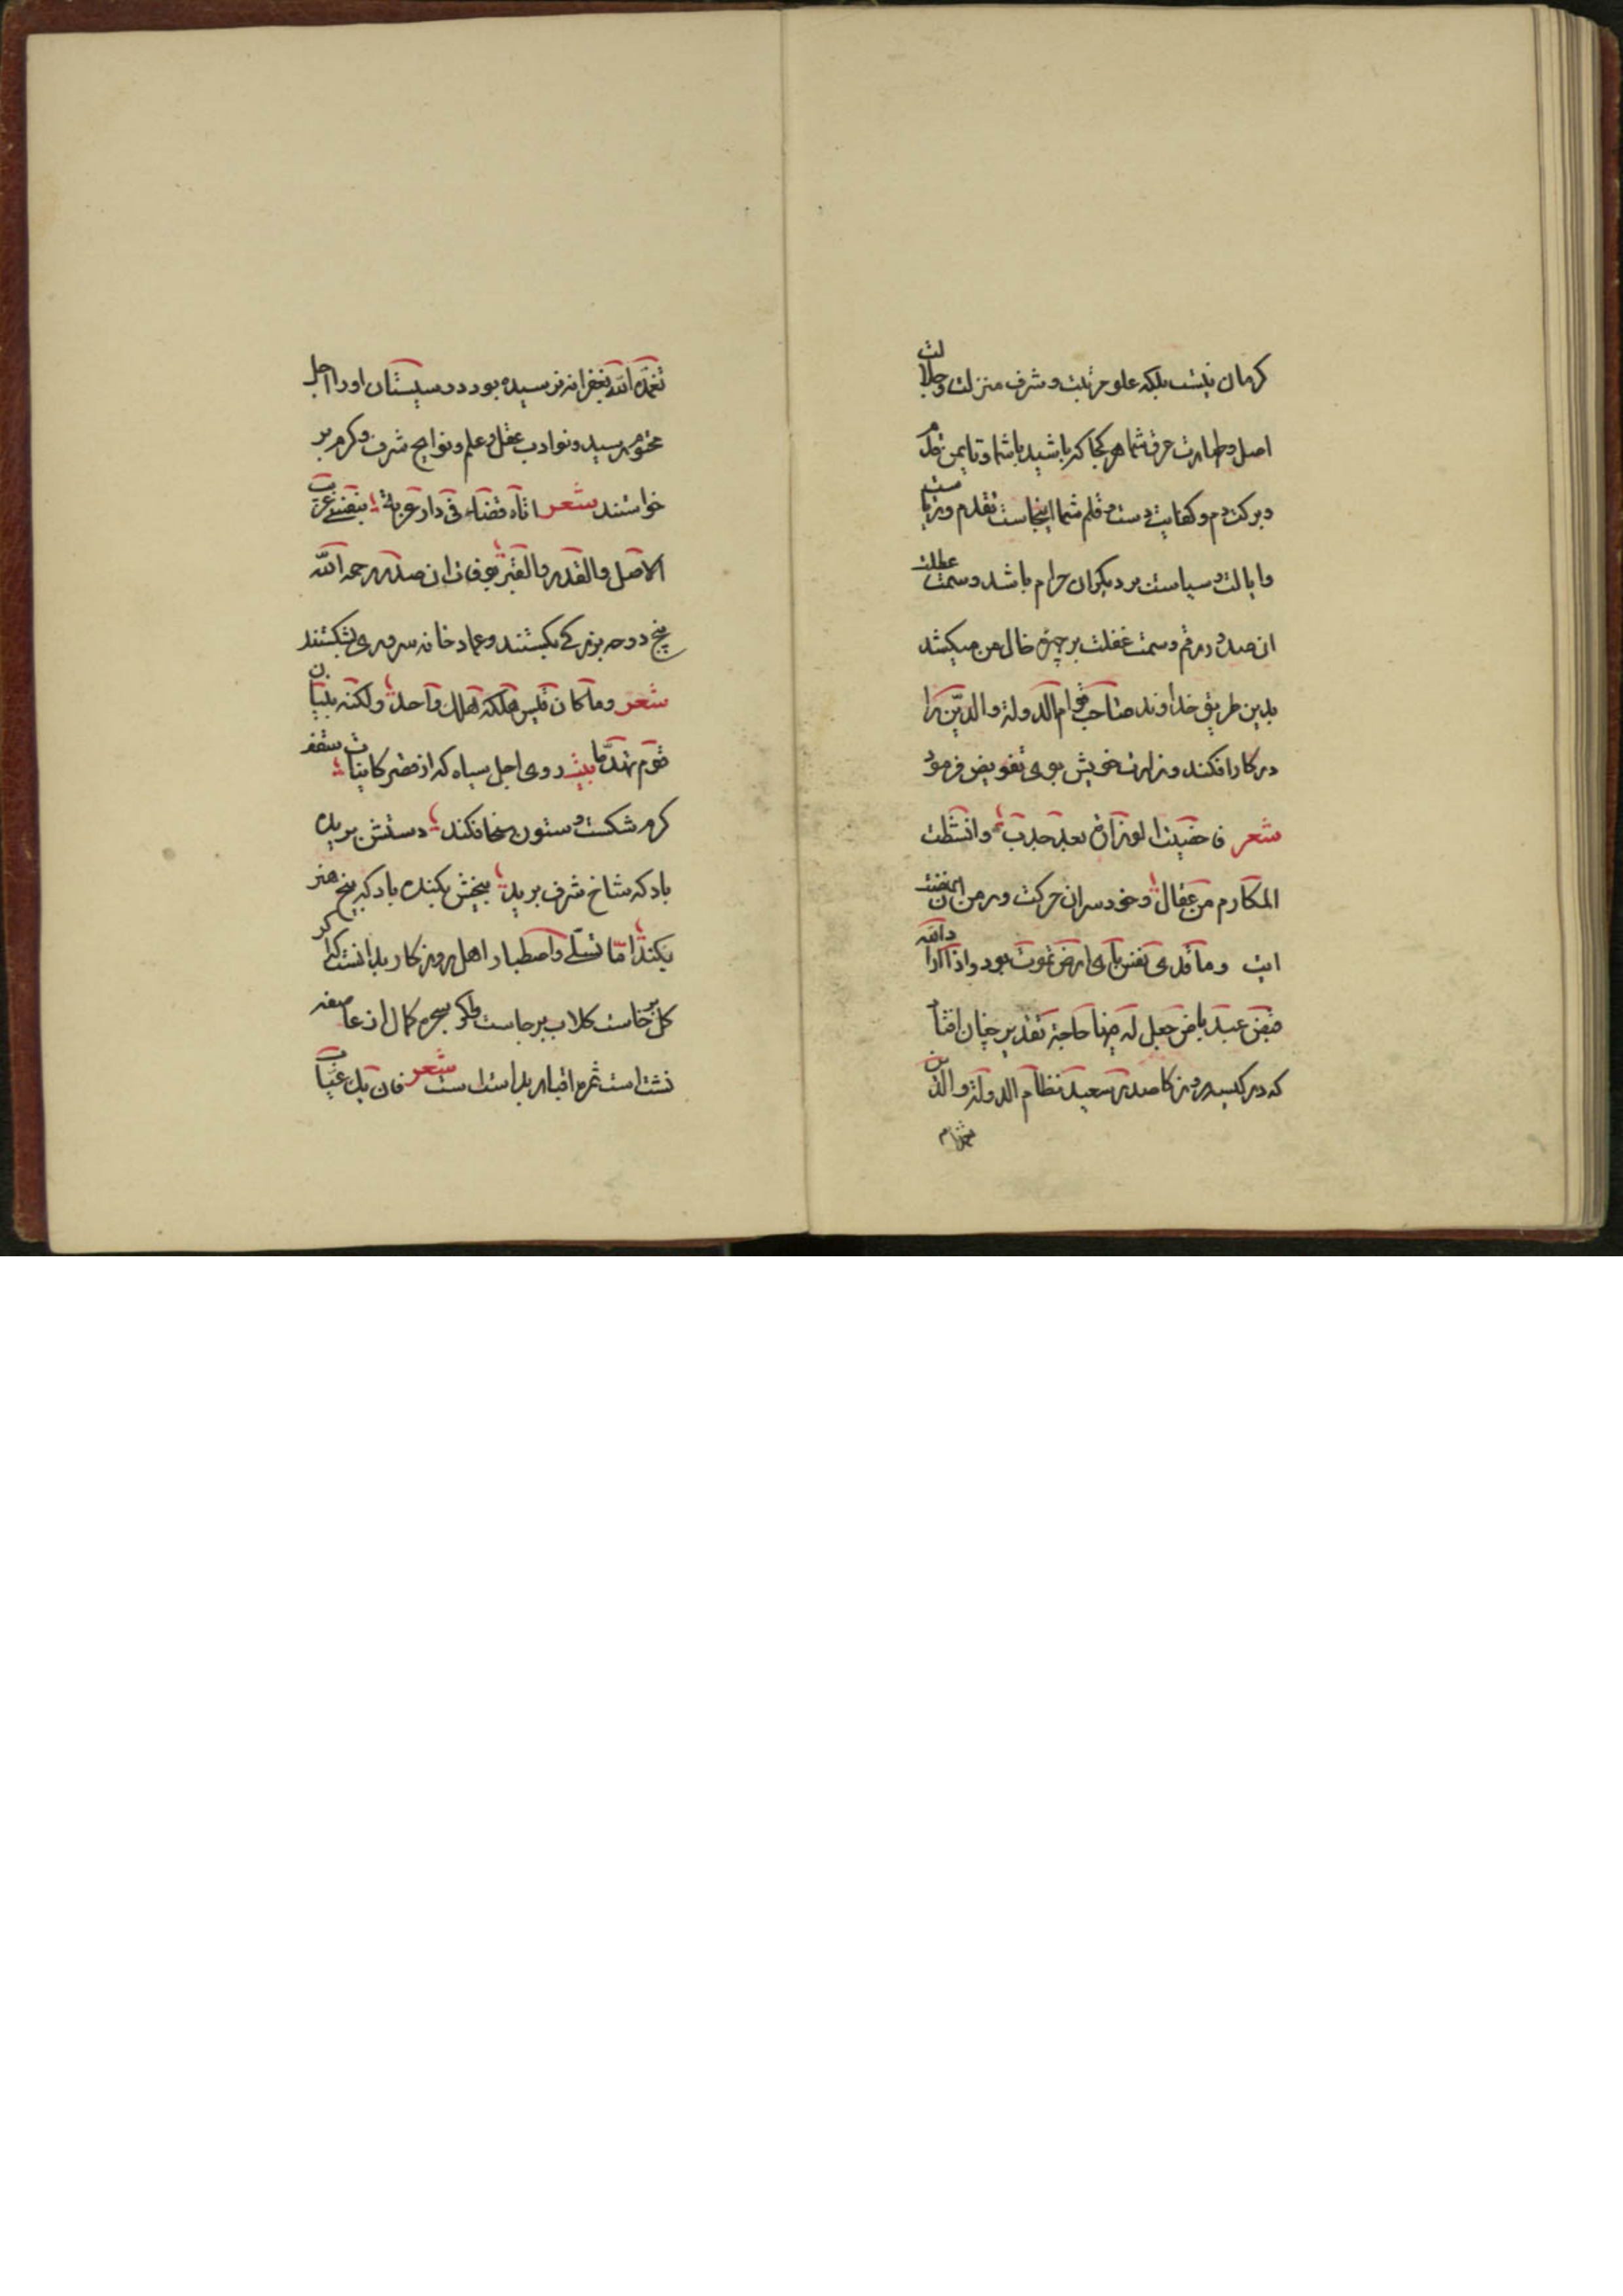 کرمان نیست بلکه علو مرتبت و شرف منزلت و جلالت
اصل و طهارت عرق شما هر کجا که باشید با شما و تا یمن قدم
و برکت دم و کفایت دست و قلم شما اینجاست تقدم و ریاست
و ایالت و سیاست بر دیکران حرام باشد و سمت عطلت
ان صدر رقم و سمت غفلت بر خال من میکشد
بدین طریق خداوند صاحب قوام الدولة والدین را
در کار افکند وزارت خویش بوی تفویض فرمود
شعر فاحضرت الوزارة بعد جدب وانشطت
المکارم من عقال و خود سر ان حرکت و رمن ان نهضت
این وما تدری نفس بای ارض تموت بود واذا اراد الله
قبض عبد بارض جعل له فیها حاجة تقدیر چنان افتاد
که در کسیر روز کا صدر سعید نظام الدولة والدین
تغمده الله بغفرانه نرسیده بود در سیستان او را اجل
محتوم رسید و نوادب عقل و علم و نوایح شرف و کرم بر
خواستند شعر اتاه قضاء فی دار غربة بنفسی غریب
الاصل والقدر والقبر بوفات ان صدر رحمه الله
بیخ دوحه بزرکی بکستند و عماد خانه سروری بشکستند
شعر وما کان قیس هلکه هلک واحد ولکنه بنیان
قوم تهدما بیت روی اجل سیاه که از قصر کاینات سقف
کرم شکست و ستون سخا فکند دستش بریده
باد که شاخ شرف برید بیخش بکنده باد که بیخ هنر
بکند اما تسلی و اصطبار اهل روزکار بدانست که اکر
کل برخاست کلاب برجاست و اکر بحرم کمال ان عاصفه
نشست است ثمره اقبال بداست است شعر فان یک غیاب